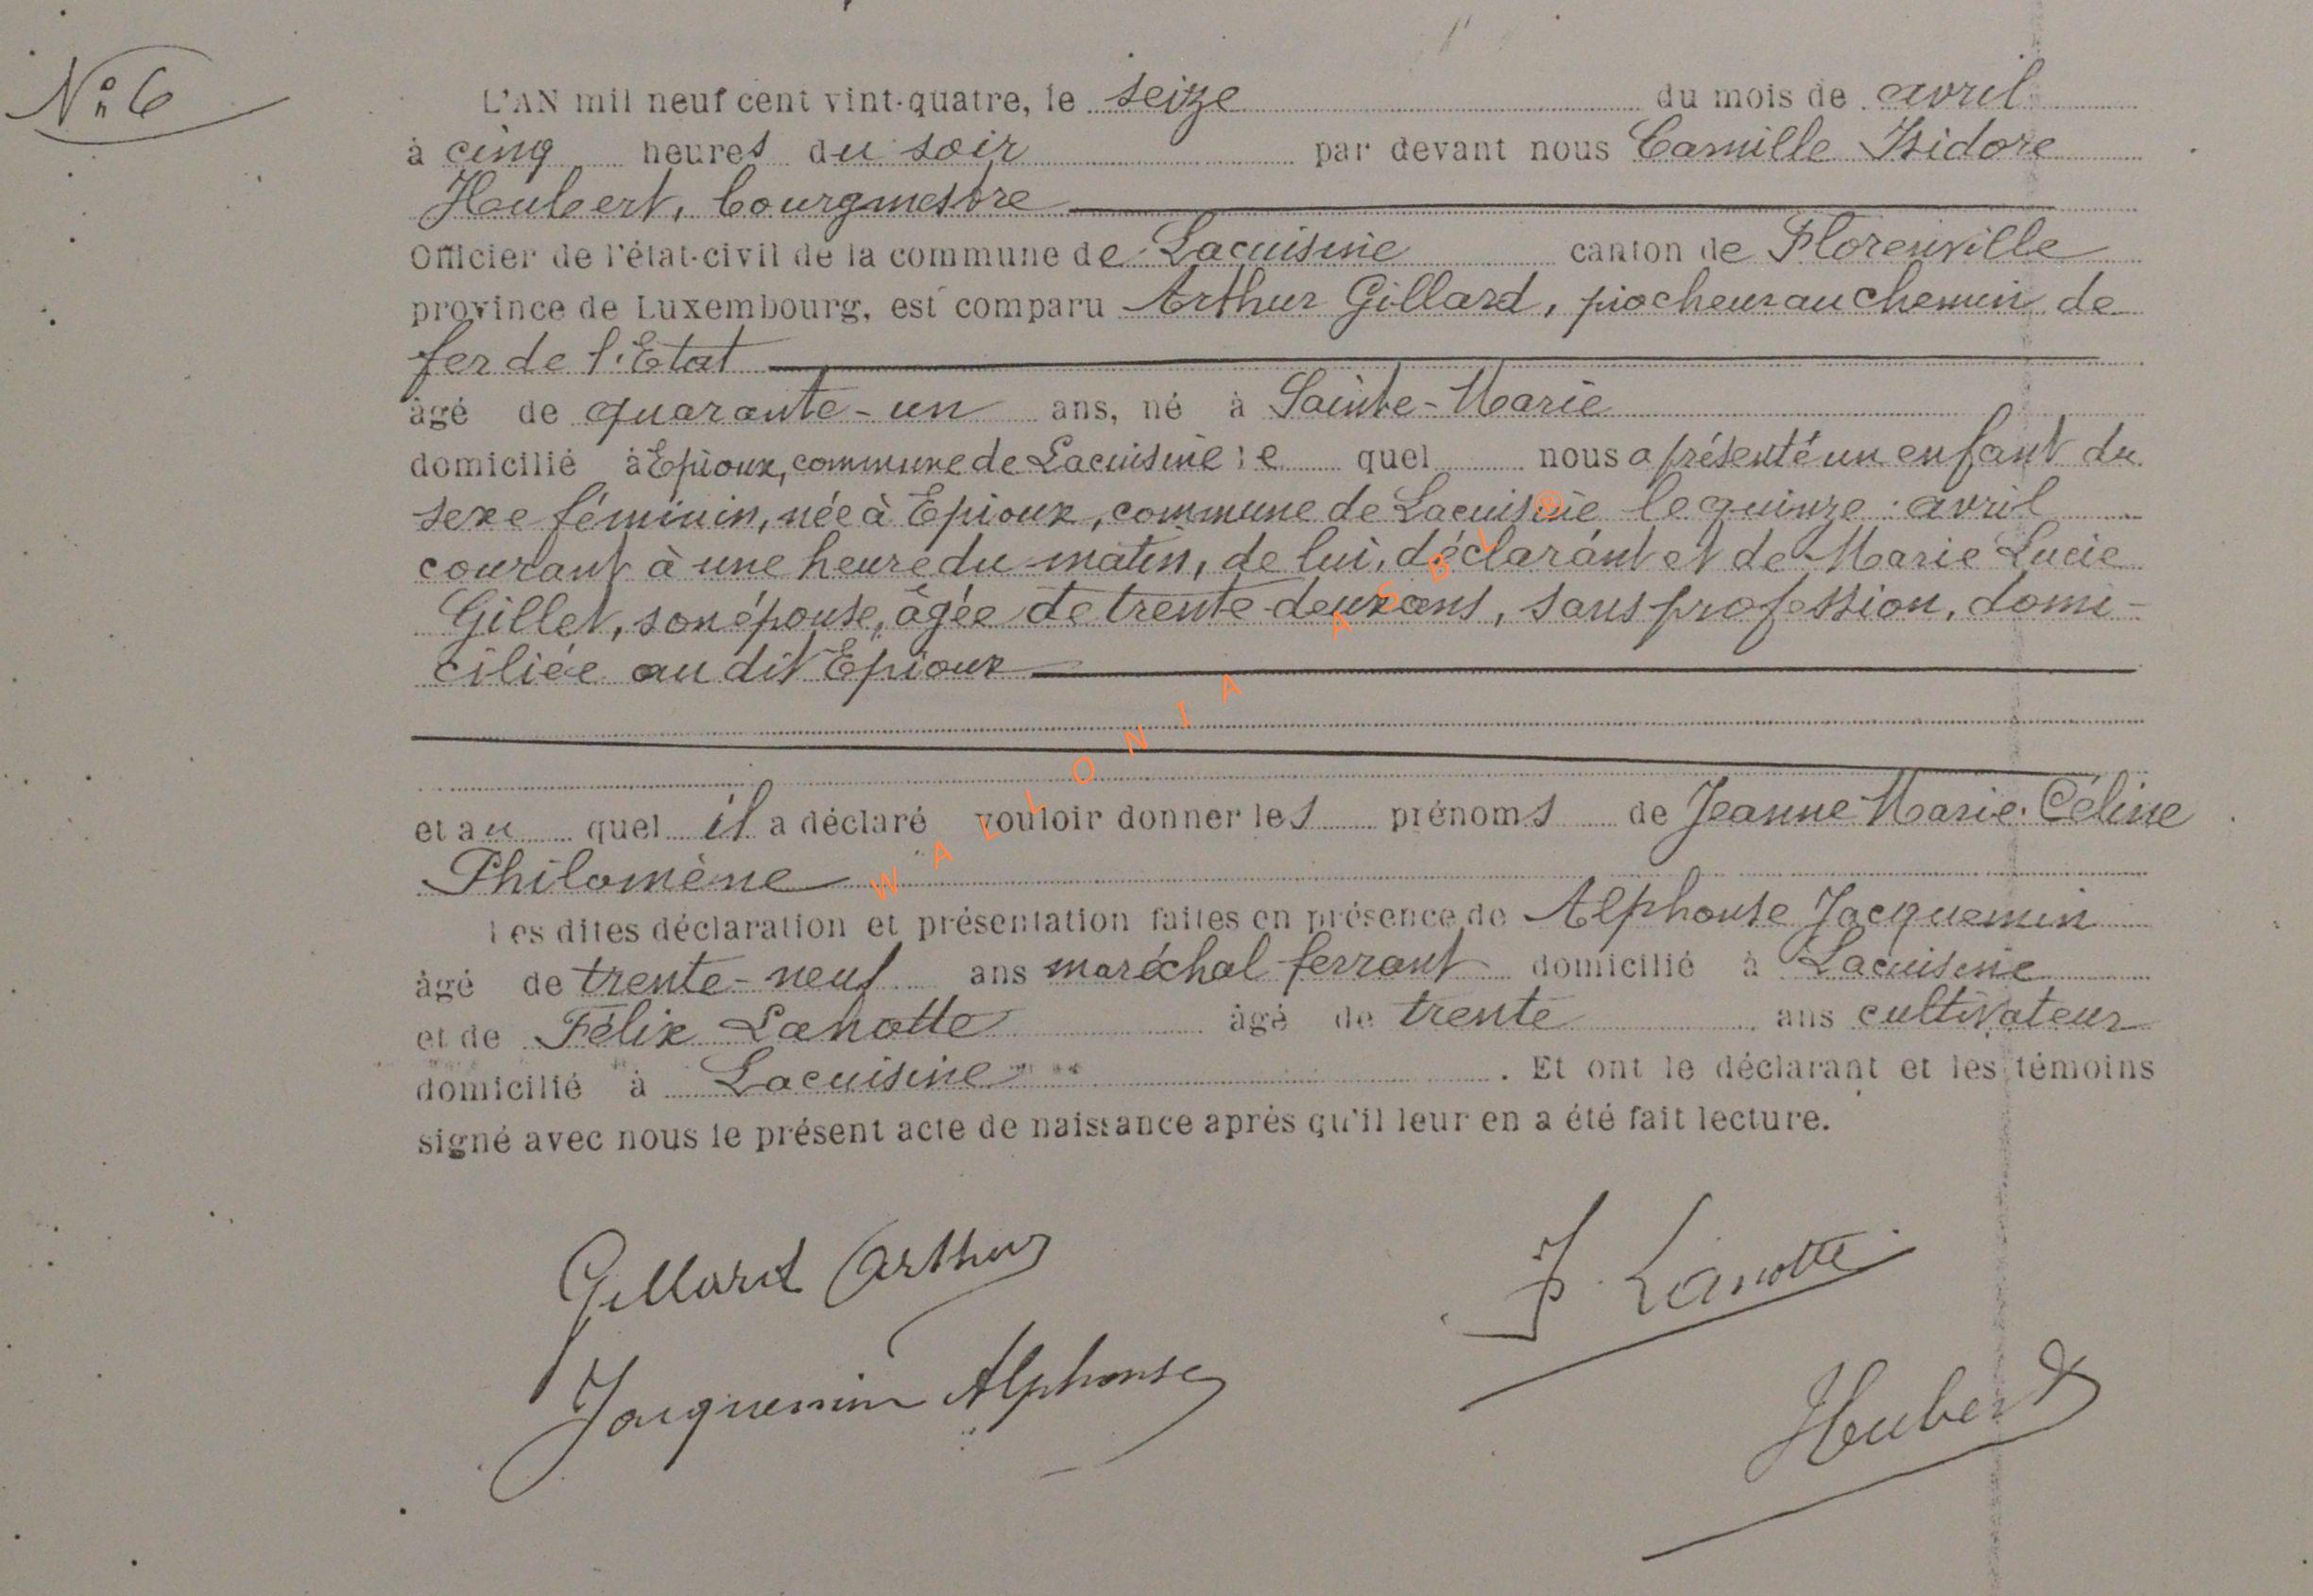 N° 6
L'AN mil neuf cent vint-quatre, le seize du mois de avril
à cinq heures du soir par devant nous Camille Isidore
Houbert, bourgmestre
Officier de l'état-civil de la commune de Lacuisine canton de Florenville
province de Luxembourg, est comparu Arthur Gillard, piocheur au chemin de
fer de l'Etat
âgé de quarante-un ans, né à Sainte-Marie
domicilié à Epioux, commune de Lacuisine le quel nous a présenté un enfant du
sexe féminin, née à Epioux, commune de Lacuisine le quinze avril
courant à une heure du matin, de lui, déclarant et de Marie Lucie
Gillet, son épouse, âgée de trente-deux ans, sans profession, domi-
ciliée au dit Epioux
et au quel il a déclaré vouloir donner les prénoms de Jeanne Marie Céline
Philomène
les dites déclaration et présentation faites en présence de Alphonse Jacquemin
âgé de trente-neuf ans maréchal ferrant domicilié à Lacuisine
et de Félix Lanotte âgé de trente ans cultivateur
domicilié à Lacuisine . Et ont le déclarant et les témoins
signé avec nous le présent acte de naissance après qu'il leur en a été fait lecture.
Gillard Arthur
F. Lanotte
Jacquemin Alphonse
Houbert
WALLONIA ASBL ®